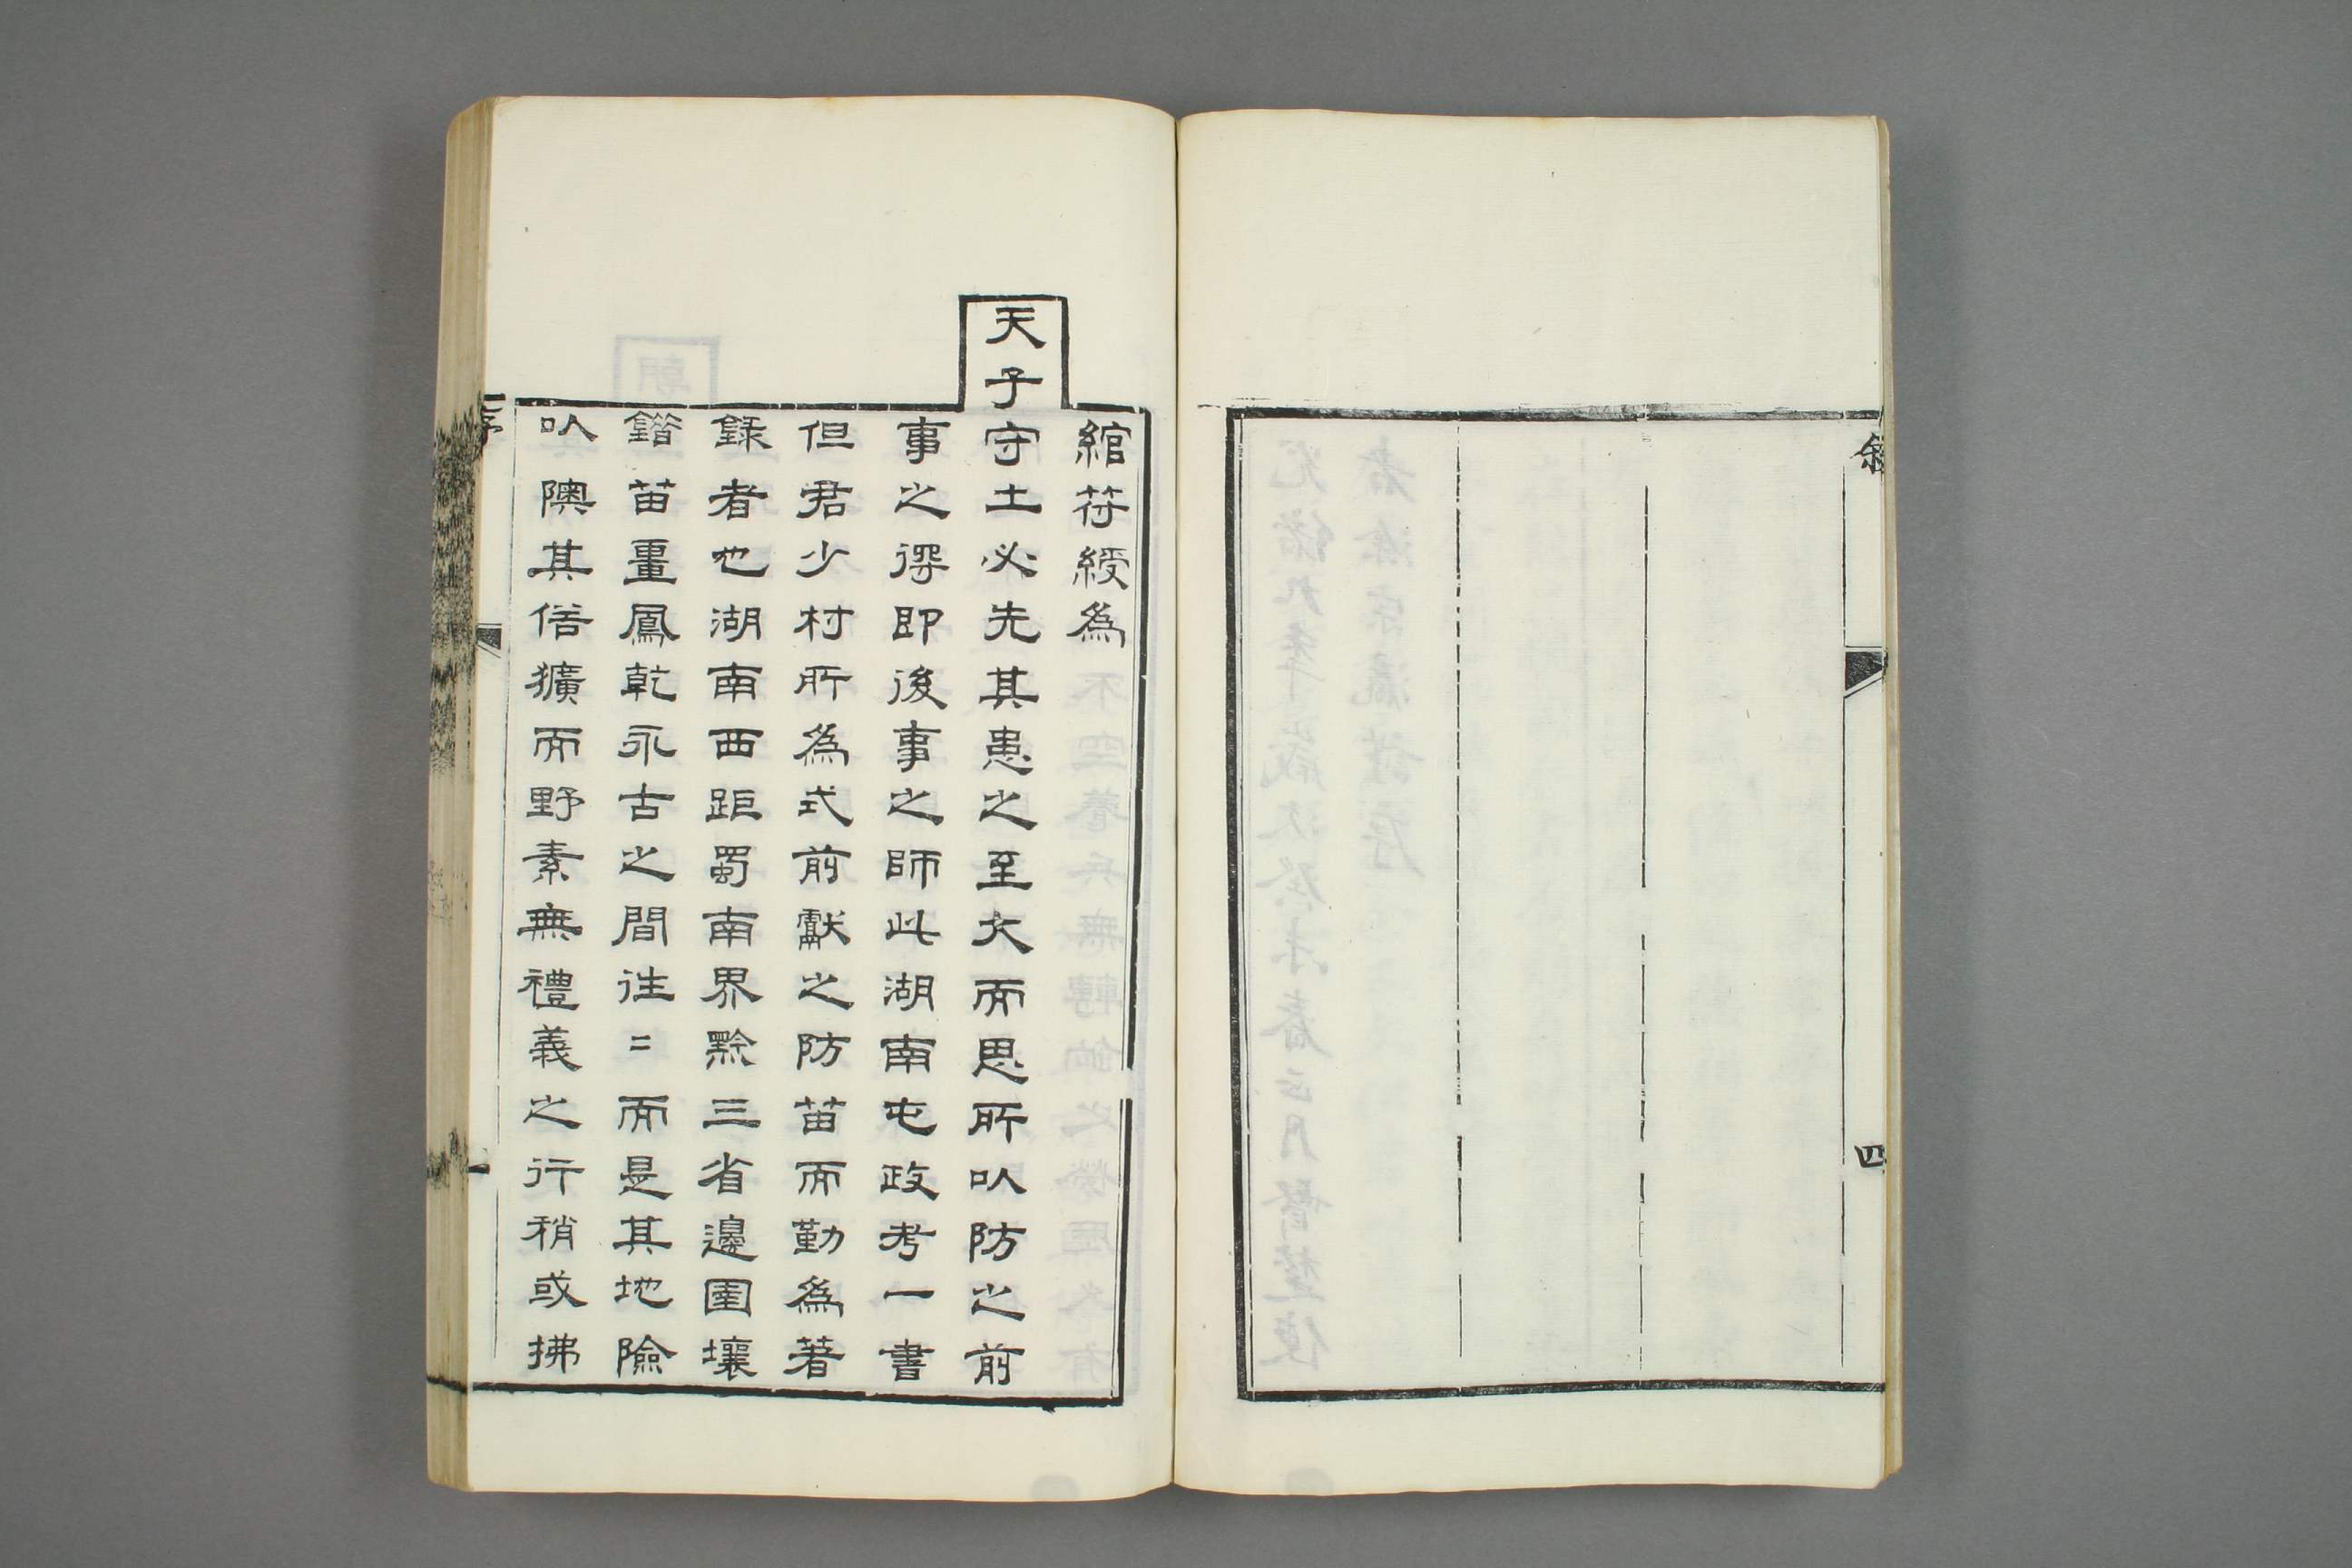 叙
四
綰符綬為
天子守土必先其患之至大而思所㕥防之前
事之得即後事之師此湖南屯政考一書
但君少村所為式前獻之防苗而勤為著
錄者也湖南西距蜀南界黔三省邊圉壤
錯苗畺鳳乾永古之間往〻而是其地險
㕥隩其俗獷而野素無禮義之行稍或拂
序
一